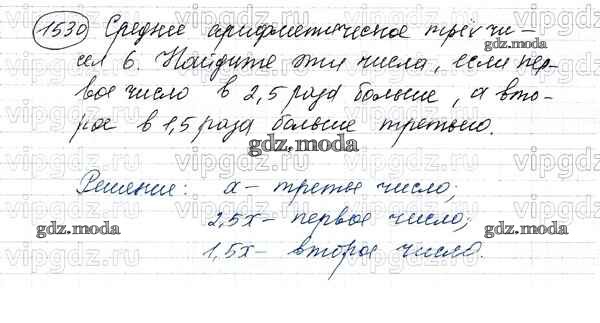 1530 Среднее арифметическое трёх чи-
сел 6. Найдите эти числа, если пер-
вое число в 2,5 раза больше, а вто-
рое в 1,5 раза больше третьего.
gdz.moda
Решение: x - третье число;
2,5x - первое число;
gdz.moda
gdz.moda
1,5x - второе число.
vipgdz.ru